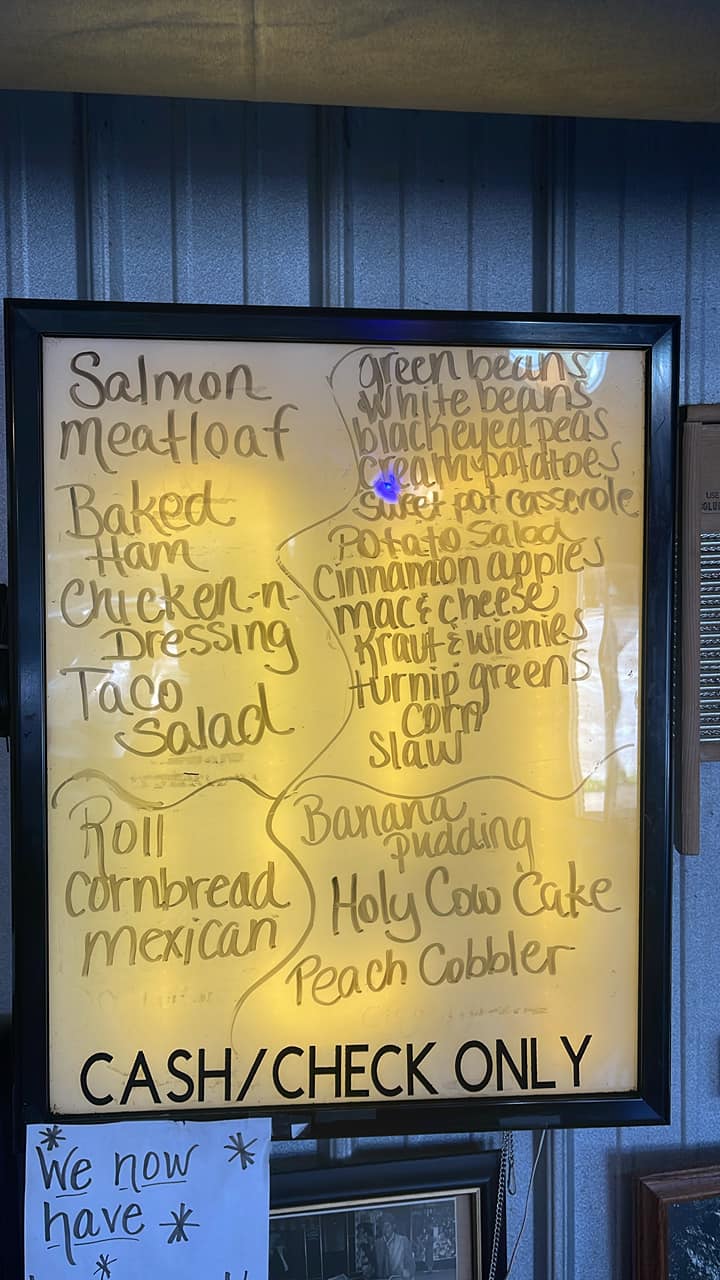 Salmon
meatloaf
Baked
Ham
Chicken-n-
Dressing
Taco
Salad
green beans
White beans
blackeyed peas
cream potatoes
Sweet pot casserole
Potato Salad
Cinnamon apples
mac & cheese
Kraut & wienies
turnip greens
corn
Slaw
Roll
Cornbread
mexican
Banana
Pudding
Holy Cow Cake
Peach Cobbler
CASH/CHECK ONLY
We now
have
USE